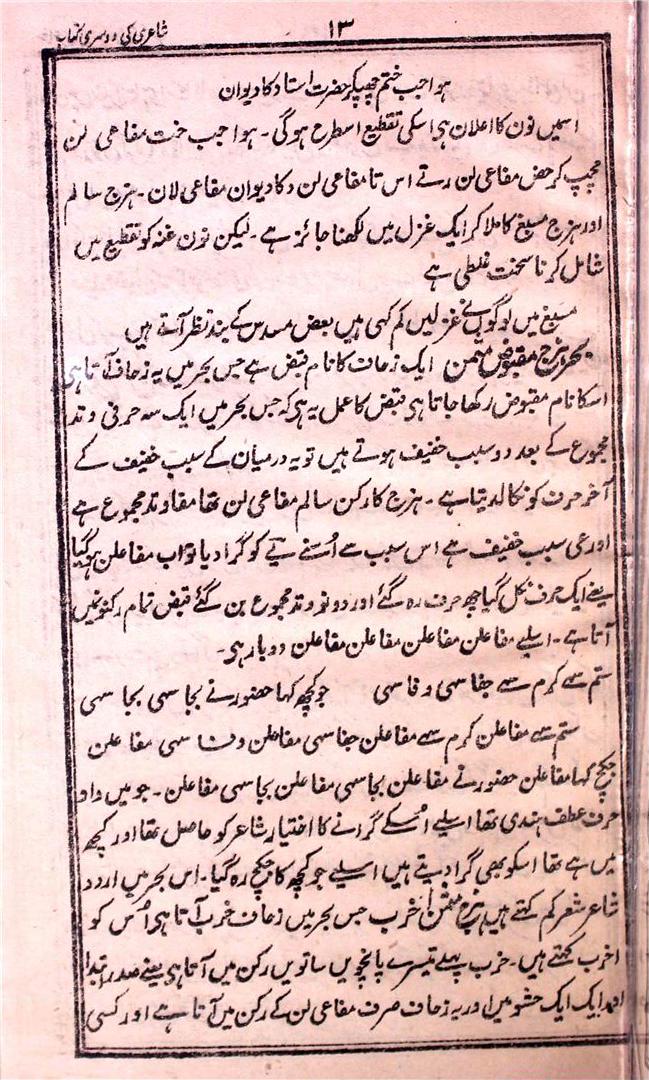 شاعری کی دوسری کتاب
۱۳
ہوا جب ختم چھپکر حضرت استاد کا دیوان
اسمیں نون کا اعلان ہی اسکی تقطیع اسطرح ہوگی۔ ہوا جب خت مفاعی لن
م چھپ کر حض مفاعی لن رتے اس تا مفاعی لن د کا دیوان مفاعی لان۔ ہزج سالم
اور ہزج مسبغ کا ملا کر ایک غزل میں لکھنا جائز ہے۔ لیکن نون غنہ کو تقطیع میں
شامل کرنا سخت غلطی ہے
مسبغ میں لوگوں نے غزلیں کم کہی ہیں بعض مسدس کے بند نظر آتے ہیں
بحر ہزج مقبوض مثمن ایک زحاف کا نام قبض ہے جس بحر میں یہ زحاف آتا ہی
اسکا نام مقبوض رکھا جاتا ہی قبض کا عمل یہ ہی کہ جس بحر میں ایک سہ حرفی وتد
مجموع کے بعد دو سبب خفیف ہوتے ہیں تو یہ درمیان کے سبب خفیف کے
آخر حرف کو نکالدیتا ہے۔ ہزج کا رکن سالم مفاعی لن تھا مفا وتد مجموع ہے
اور عی سبب خفیف ہے اس سبب سے اُسنے یے کو گرا دیا تو اب مفاعلن ہو گیا
یعنے ایک حرف نکل گیا چھ حرف رہ گئے اور دونو وتد مجموع بن گئے قبض تمام رکنو نمیں
آتا ہے۔ اسلیے مفاعلن مفاعلن مفاعلن مفاعلن دو بار ہی۔
ستم سے کرم سے جفا سہی وفا سہی جو کچھ کہا حضور نے بجا سہی بجا سہی
ستم سے مفاعلن کرم سے مفاعلن جفا سہی مفاعلن وفا سہی مفاعلن
ج کچ کہا مفاعلن حضور نے مفاعلن بجا سہی مفاعلن بجا سہی مفاعلن۔ جو میں واو
حرف عطف ہندی تھا اسلیے اُسکے گرانے کا اختیار شاعر کو حاصل تھا اور کچھ
میں ہے تھا اسکو بھی گرا دیتے ہیں اسلیے جو کچھ کا ج کچ رہ گیا۔ اس بحر میں اردو
شاعر شعر کم کہتے ہیں ہزج مثمن اخرب جس بحر میں زحاف خرب آتا ہی اُس کو
اخرب کہتے ہیں۔ خرب پہلے تیسرے پانچویں ساتویں رکن میں آتا ہی یعنے صدر ابتدا
اور ایک ایک حشو میں اور یہ زحاف صرف مفاعی لن کے رکن میں آتا ہے اور کسی